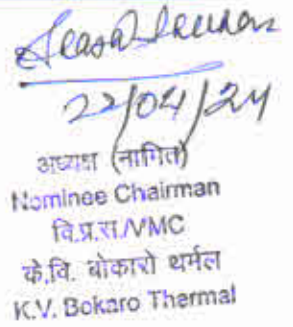 22/04/24
अध्यक्ष (नामित)
Nominee Chairman
वि.प्र.स./VMC
के.वि. बोकारो थर्मल
K.V. Bokaro Thermal